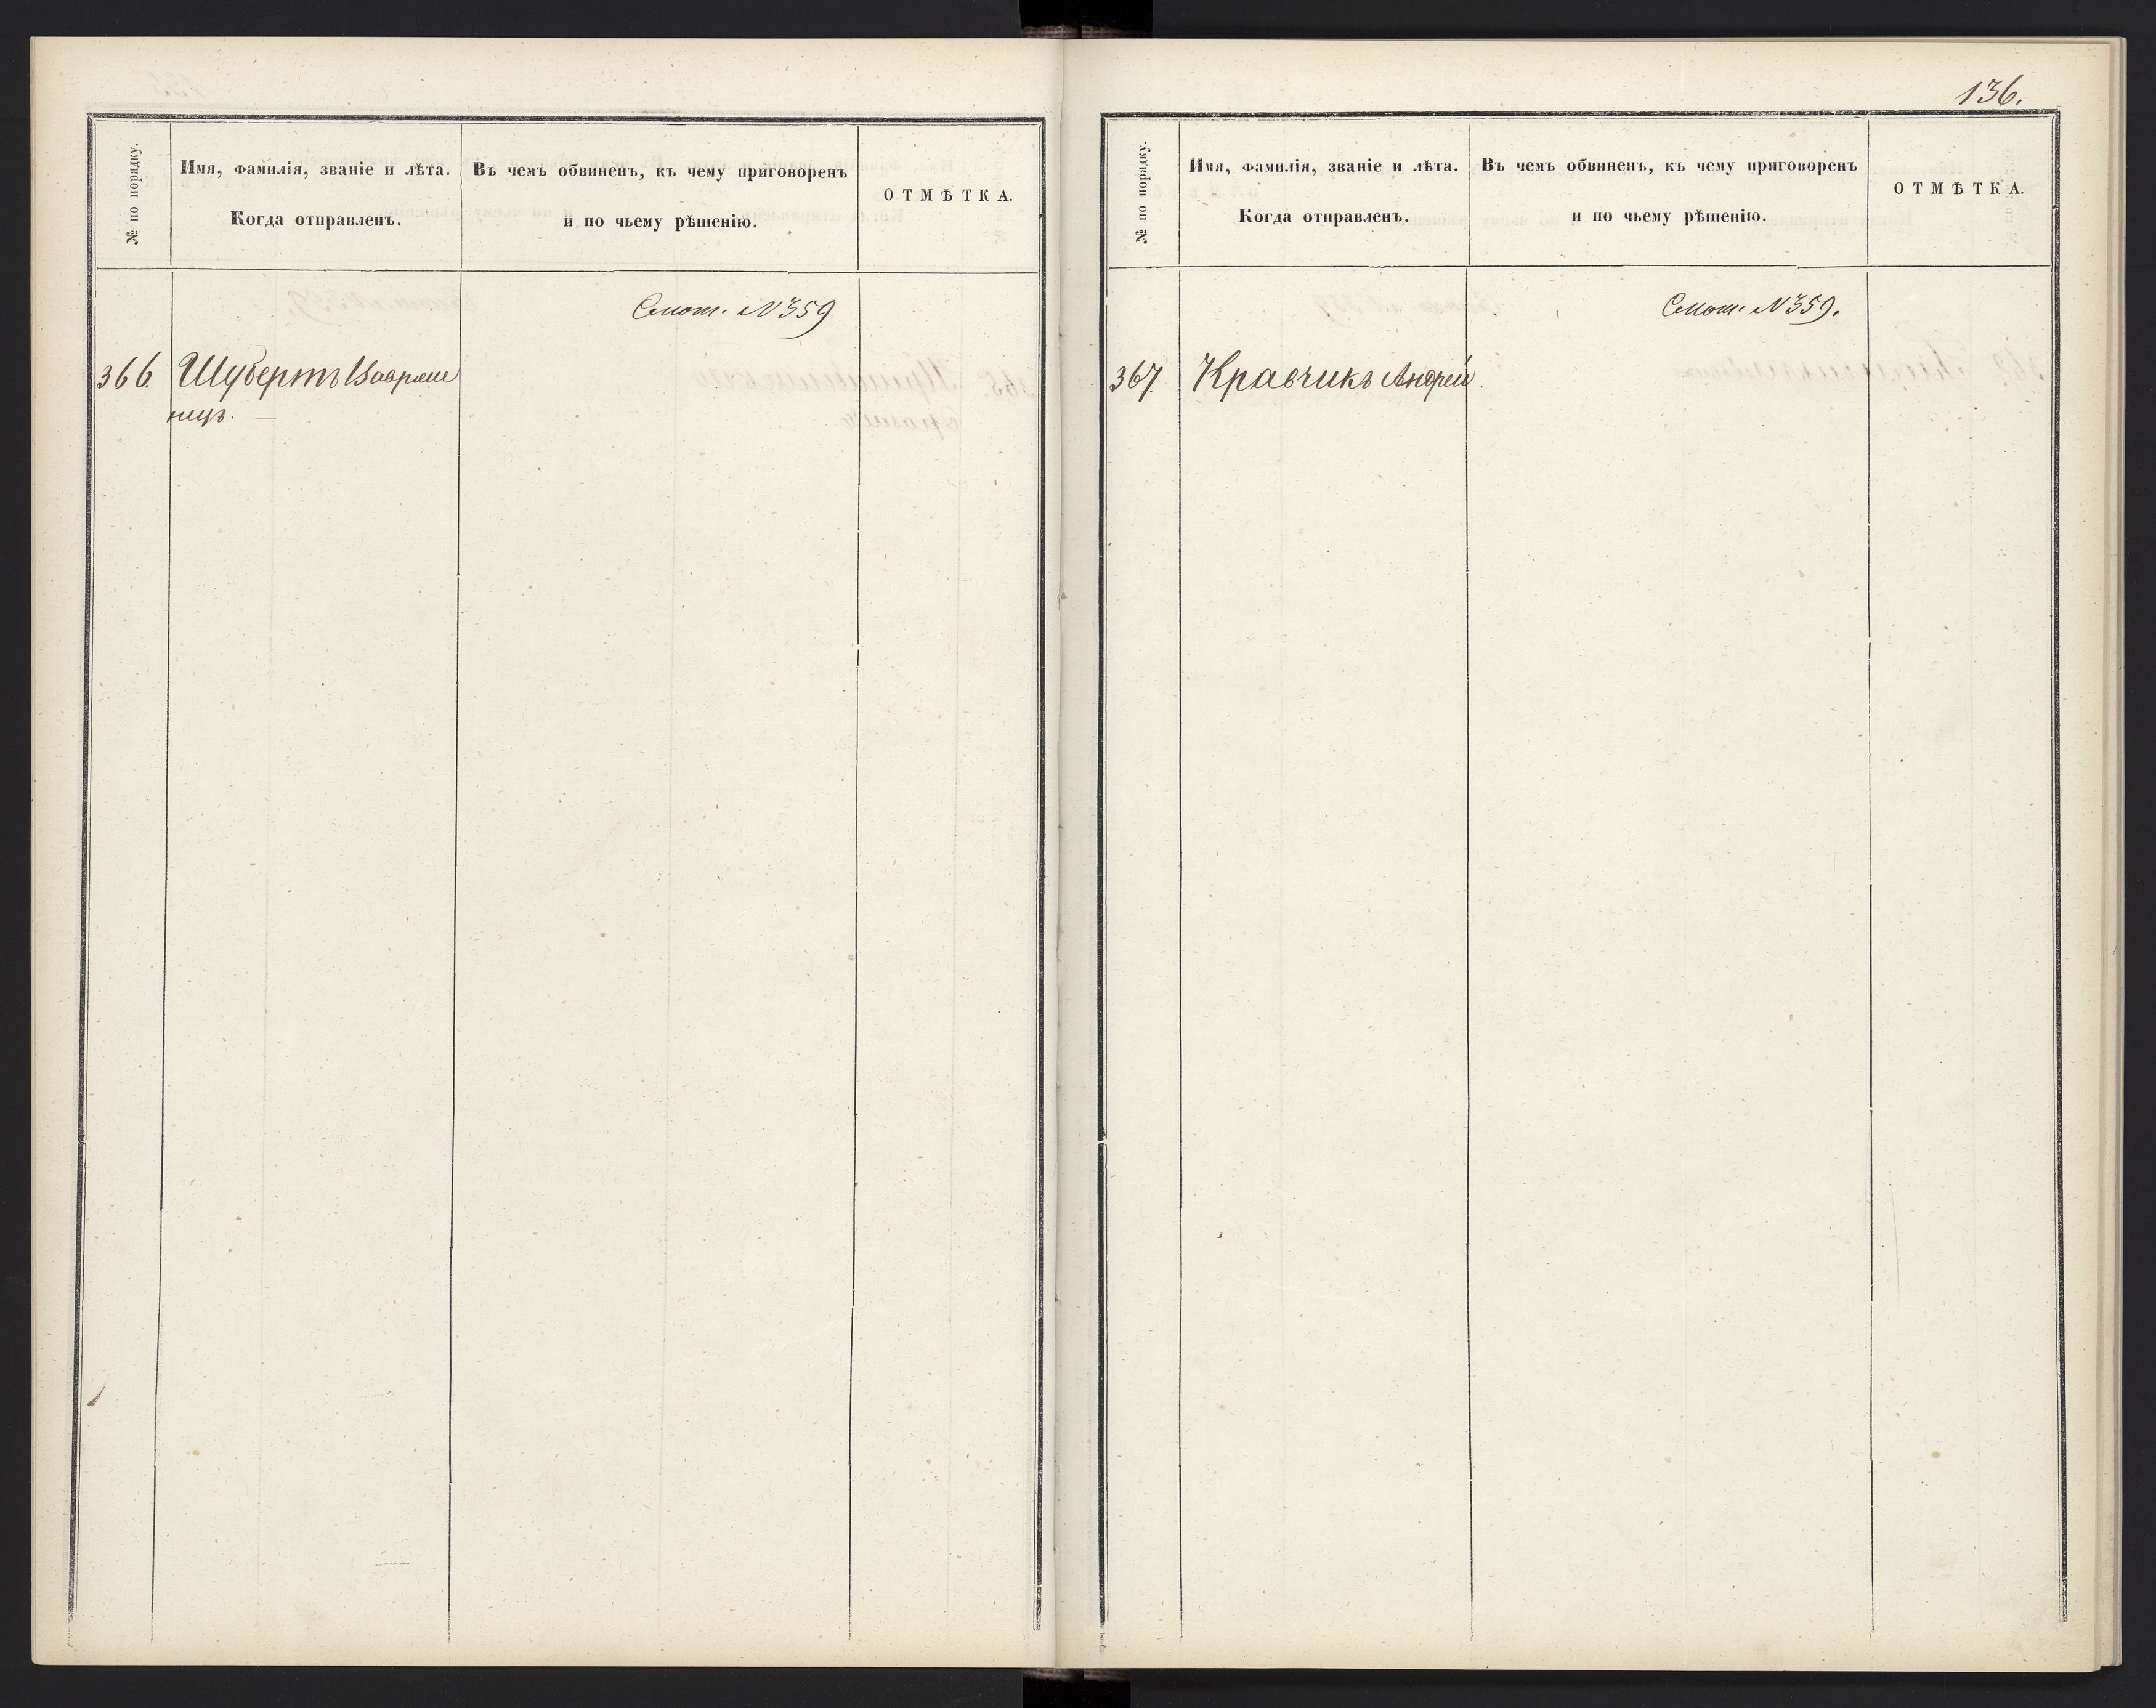 № по порядку.
Имя, фамилія, званіе и лѣта.
Когда отправленъ.
Въ чемъ обвиненъ, къ чему приговоренъ
и по чьему рѣшенію.
ОТМѢТКА.
Смот. №359
366. Шубертъ Вавржи
нцъ.
136.
№ по порядку.
Имя, фамилія, званіе и лѣта.
Когда отправленъ.
Въ чемъ обвиненъ, къ чему приговоренъ
и по чьему рѣшенію.
ОТМѢТКА.
Смот. №359.
367. Кравчикъ Андрей.